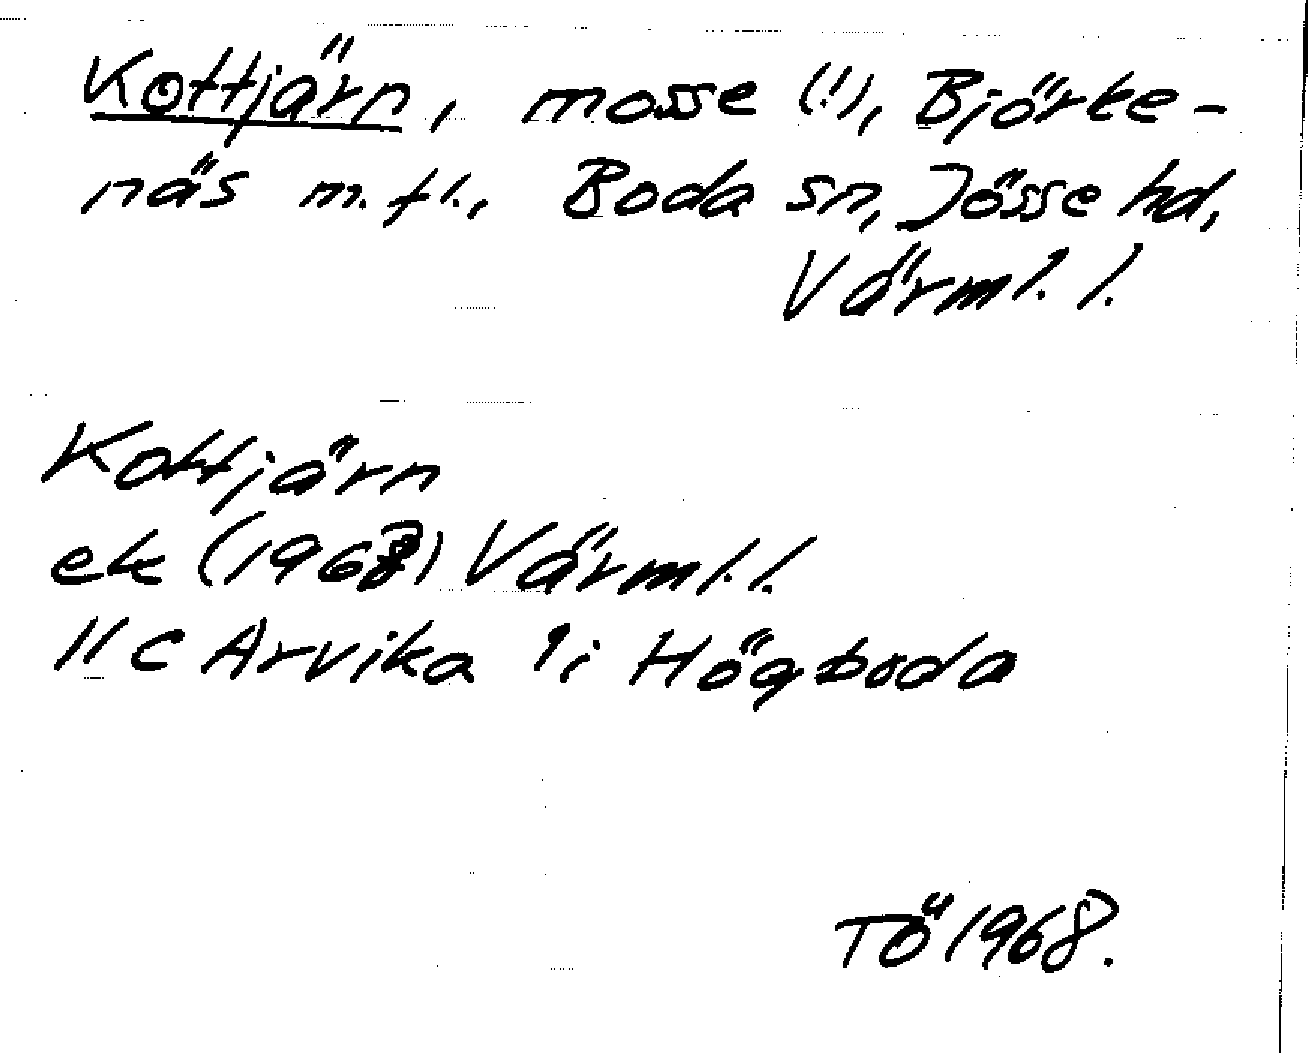 Kottjärn, mosse (!), Björke-
näs m.fl., Boda sn, Jösse hd,
Värml. l.
Kottjärn
ek (1968) Värml. l.
11c Arvika 1i Högboda
TÖ 1968.